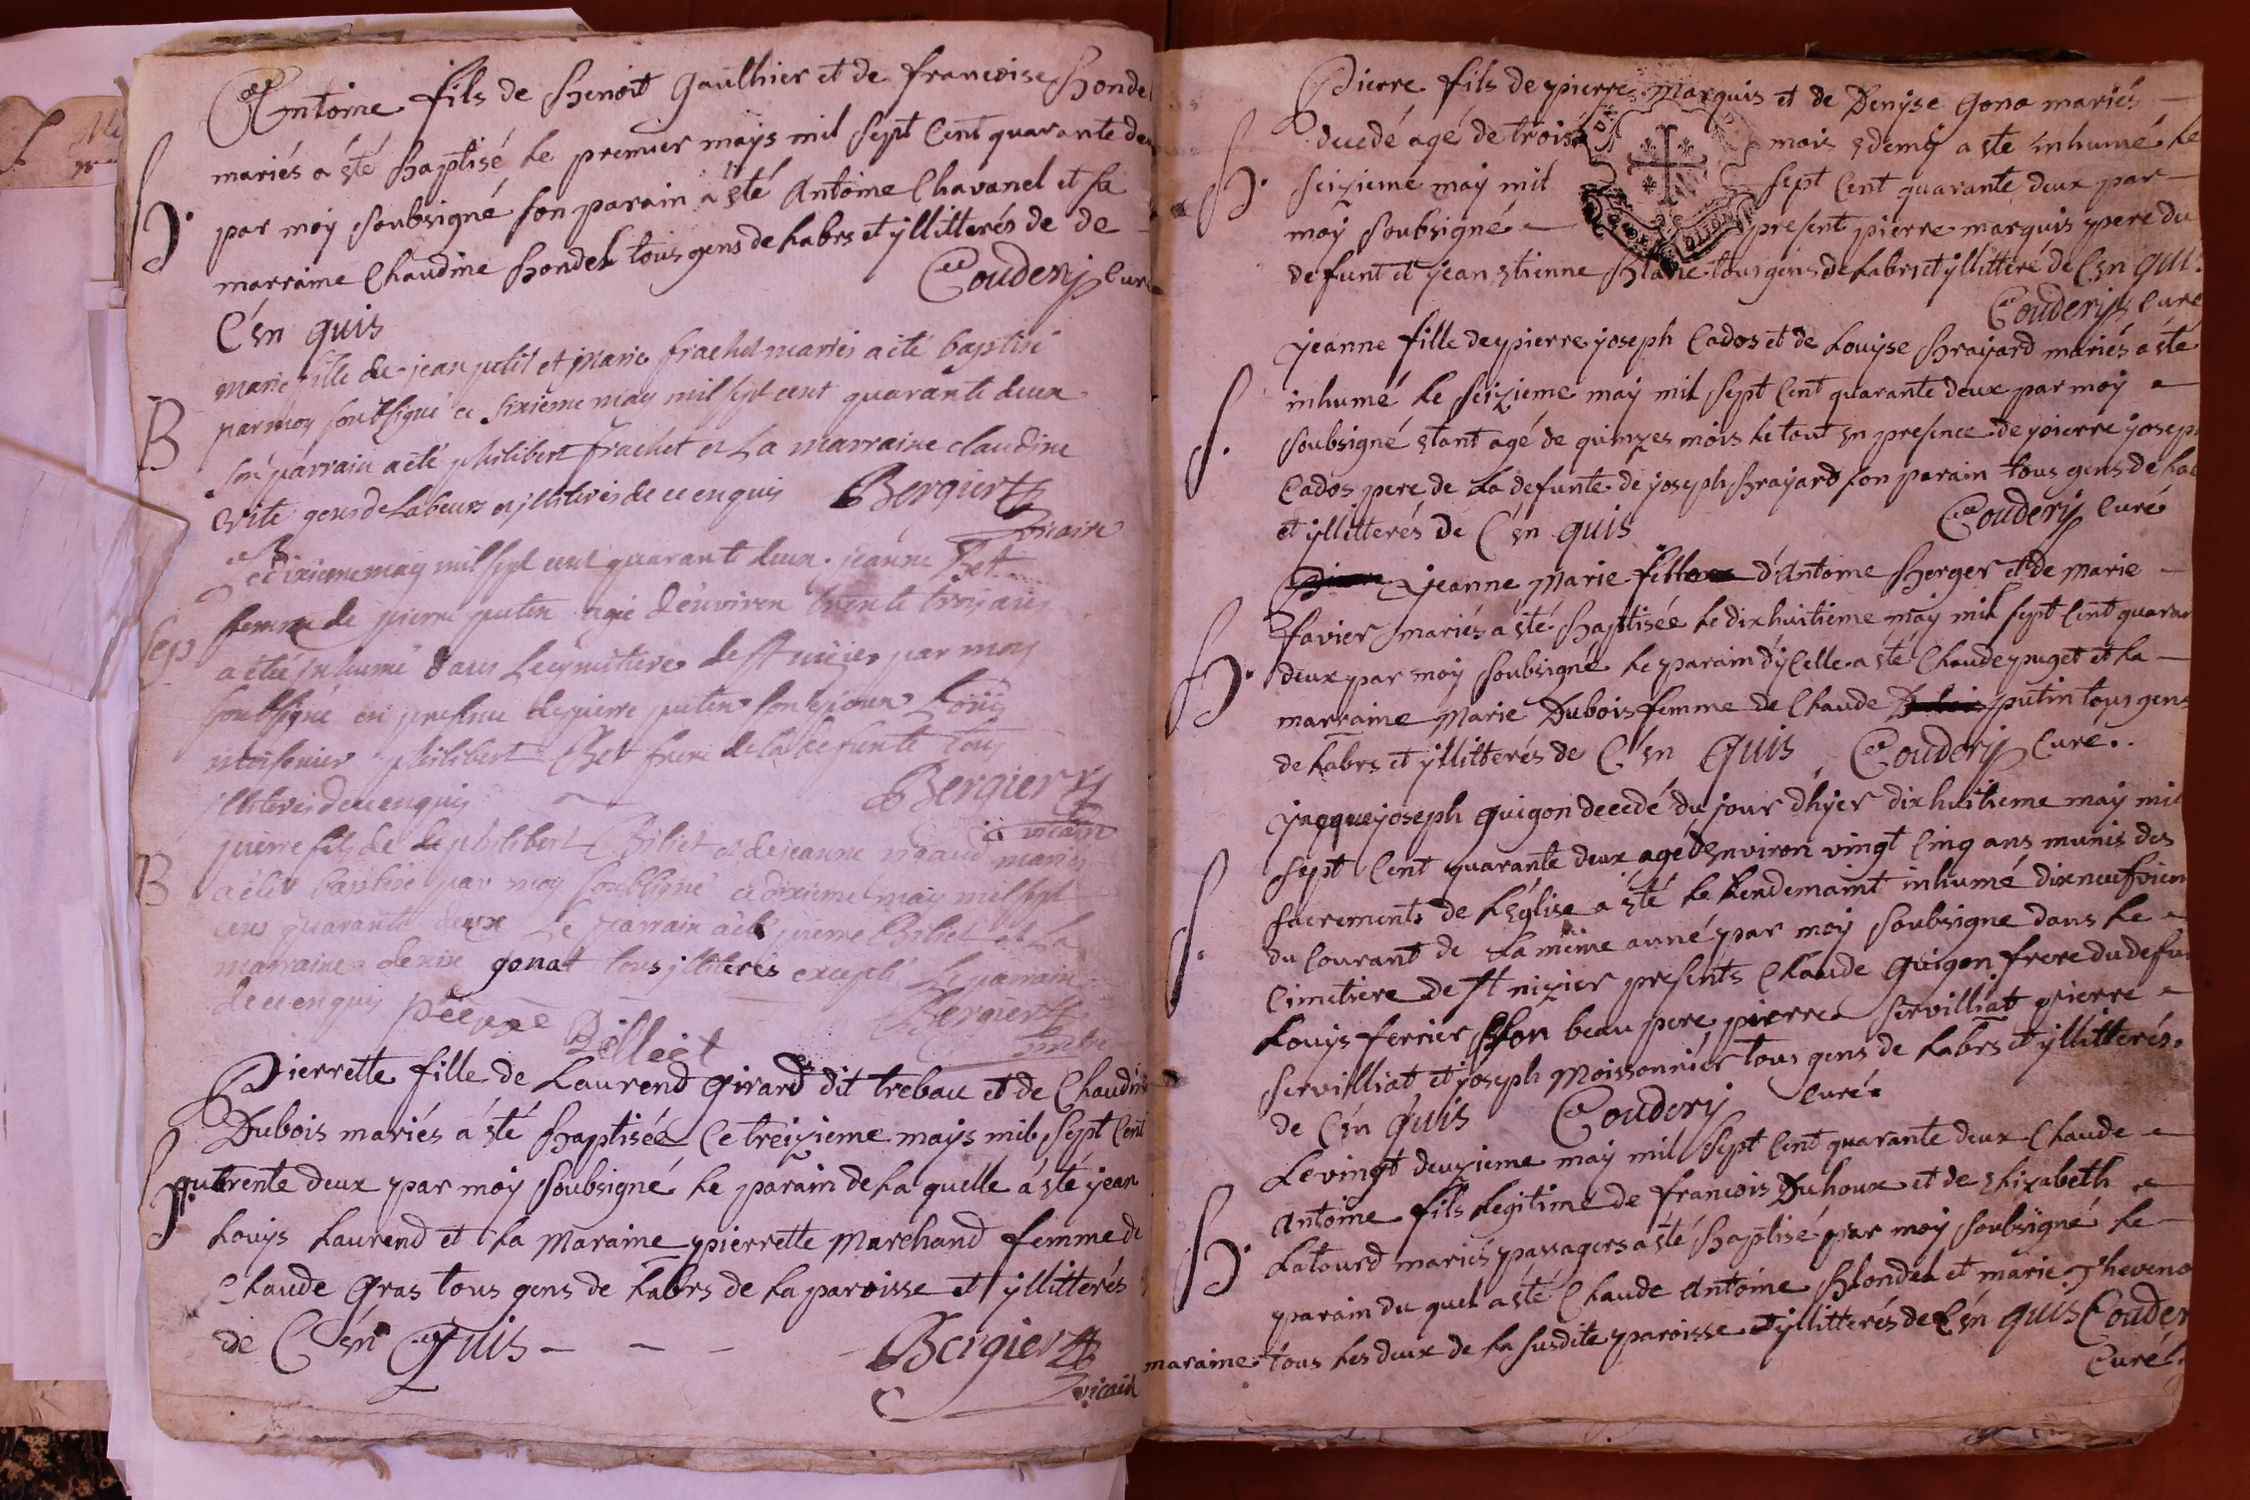 Antoine fils de Benoit Gaulthier et de francoise Blondel
mariés a été Baptisé le premier mays mil sept cent quarante deux
B.
par moy soubsigné son parain a été Antoine Chavanel et sa
marraine Claudine Blondel tous gens de labrs et yllitterés de de
C'en quis
Coudery Curé
marie fille de jean petit et Marie frachet mariés a été baptisé
B
par moy soubsigné ce sixieme may mil sept cent quarante deux
son parrain a été philibert frachet et La marraine claudine
vite gens de Labeurs et jllitterés de ce enquis Bergier
vicaire
ce dixieme may mil sept cent quarante deux jeanne Bet
femme de pierre putin agé d'environ trente trois ans
Sep
a étée jnhumé dans Le cymitiere de st nizier par moy
soubsigné en presence de pierre putin son epoux Loüis
moissonier philibert Bet frere de la defunte tous
jllitterés de ce enquis
Bergier
vicaire
pierre fils de philibert Billiet et de jeanne rigaud mariés
B
a été baptisé par moy soubsigné ce dixieme may mil sept
cent quarante deux Le parrain a été pierre Billiet et La
marraine denise gonat tous jlliterés excepté Le parrain
de ce enquis pieere Billiet
Bergier
vicaire
Pierrette fille de Laurend Girard dit trebau et de Claudine
Dubois mariés á été Baptisée Ce treizieme mays mil sept Cent
B.
qutrente deux par moy soubsigné le parain de la quelle á été jean
Louys Laurend et la Maraine pierrette Marchand femme de
Claude Gras tous gens de labrs de la paroisse et yllitterés
de C'en Quis - - - -
Bergier
vicaire
Pierre fils de pierre Marquis et de Denyse Gona mariés
decedé agé de trois mois & demy a été inhumé le
S.
seizieme may mil sept Cent quarante deux par
moy soubsigné present pierre marquis pere du
defunt et jean etienne tous gens de labrs et yllitteré de C'en QUI.
Coudery Curé
jeanne fille de pierre joseph Cados et de Louyse Brayard mariés a été
inhumé le seizieme may mil sept Cent quarante deux par moy
S.
soubsigné etant agé de quinzes mois le tout en presence de pierre joseph
Cados pere de la defunte de joseph Brayard son parain tous gens de la
et yllitterés de C'en quis
Coudery Curé
jeanne Marie fille d'Antoine Berger et de Marie
favier mariés á été Baptisée le dixhuitieme may mil sept Cent quaran
B.
deux par moy soubsigné le parain d'yCelle a été Claude puget et la
marraine Marie Dubois femme de Claude putin tous gens
de labrs et yllitterés de C'en QUIS Coudery Curé.
jacque joseph Guigon decedé du jour d'hyer dixhuitieme may mil
sept Cent quarante deux agé d'environ vingt Cinq ans munis des
sacrements de l'Eglise a été le lendemaint inhumé dixneufviem
S.
du Courant de la même anné par moy soubsigné dans le
Cimetiere de st nizier presents Claude Guigon frere du defun
Louys ferrier son beau pere, pierre servilliat pierre
servilliat et joseph Moissonnier tous gens de labrs et yllitterés.
de C'en quis Coudery Curé.
Le vingt deuzieme may mil sept Cent quarante deux Claude
Antoine fils legitime de francois Duhoux et de Elizabeth
B.
Latourd mariés passagers a été Baptisé par moy soubsigné le
parain du quel a été Claude Antoine Blondel et marie Theveno
maraine tous les deux de la susdite paroisse et yllitterés de C'en quis Couder
Curé.